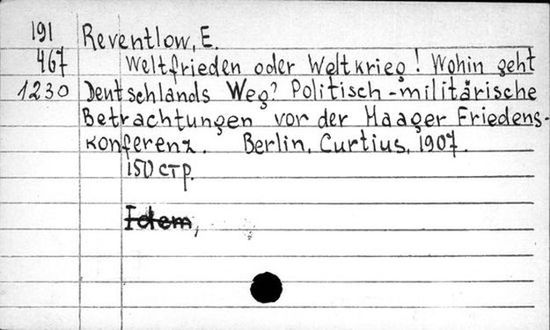 191 Reventlow, E.
467 Weltfrieden oder Weltkrieg! Wohin geht
1230 Deutschlands Weg? Politisch-militärische
Betrachtungen vor der Haager Friedens-
konferenz. Berlin, Curtius, 1907.
150 стр.
Idem,